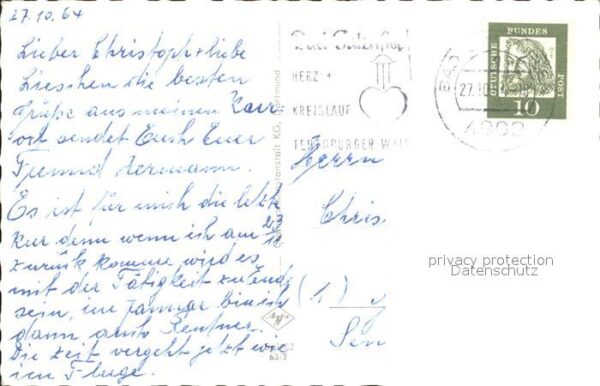 27.10.64
Lieber Christoph + liebe
Lieschen die besten
Grüße aus meinem Kur
ort sendet Euch Euer
Freund Hermann.
Es ist für mich die letzte
Kur denn wenn ich am 23/11
zurück komme wird es
mit der Tätigkeit zu Ende
sein, im Januar bin ich
dann auch Rentner.
Die Zeit vergeht jetzt wie
im Fluge.
Bad Salzuflen
HERZ +
KREISLAUF
TEUTOBURGER WALD
BAD
27.10
4902
DEUTSCHE BUNDES POST
10
Herrn
Chris
(1)
Sen
KG, Dortmund
6313
privacy protection
Datenschutz